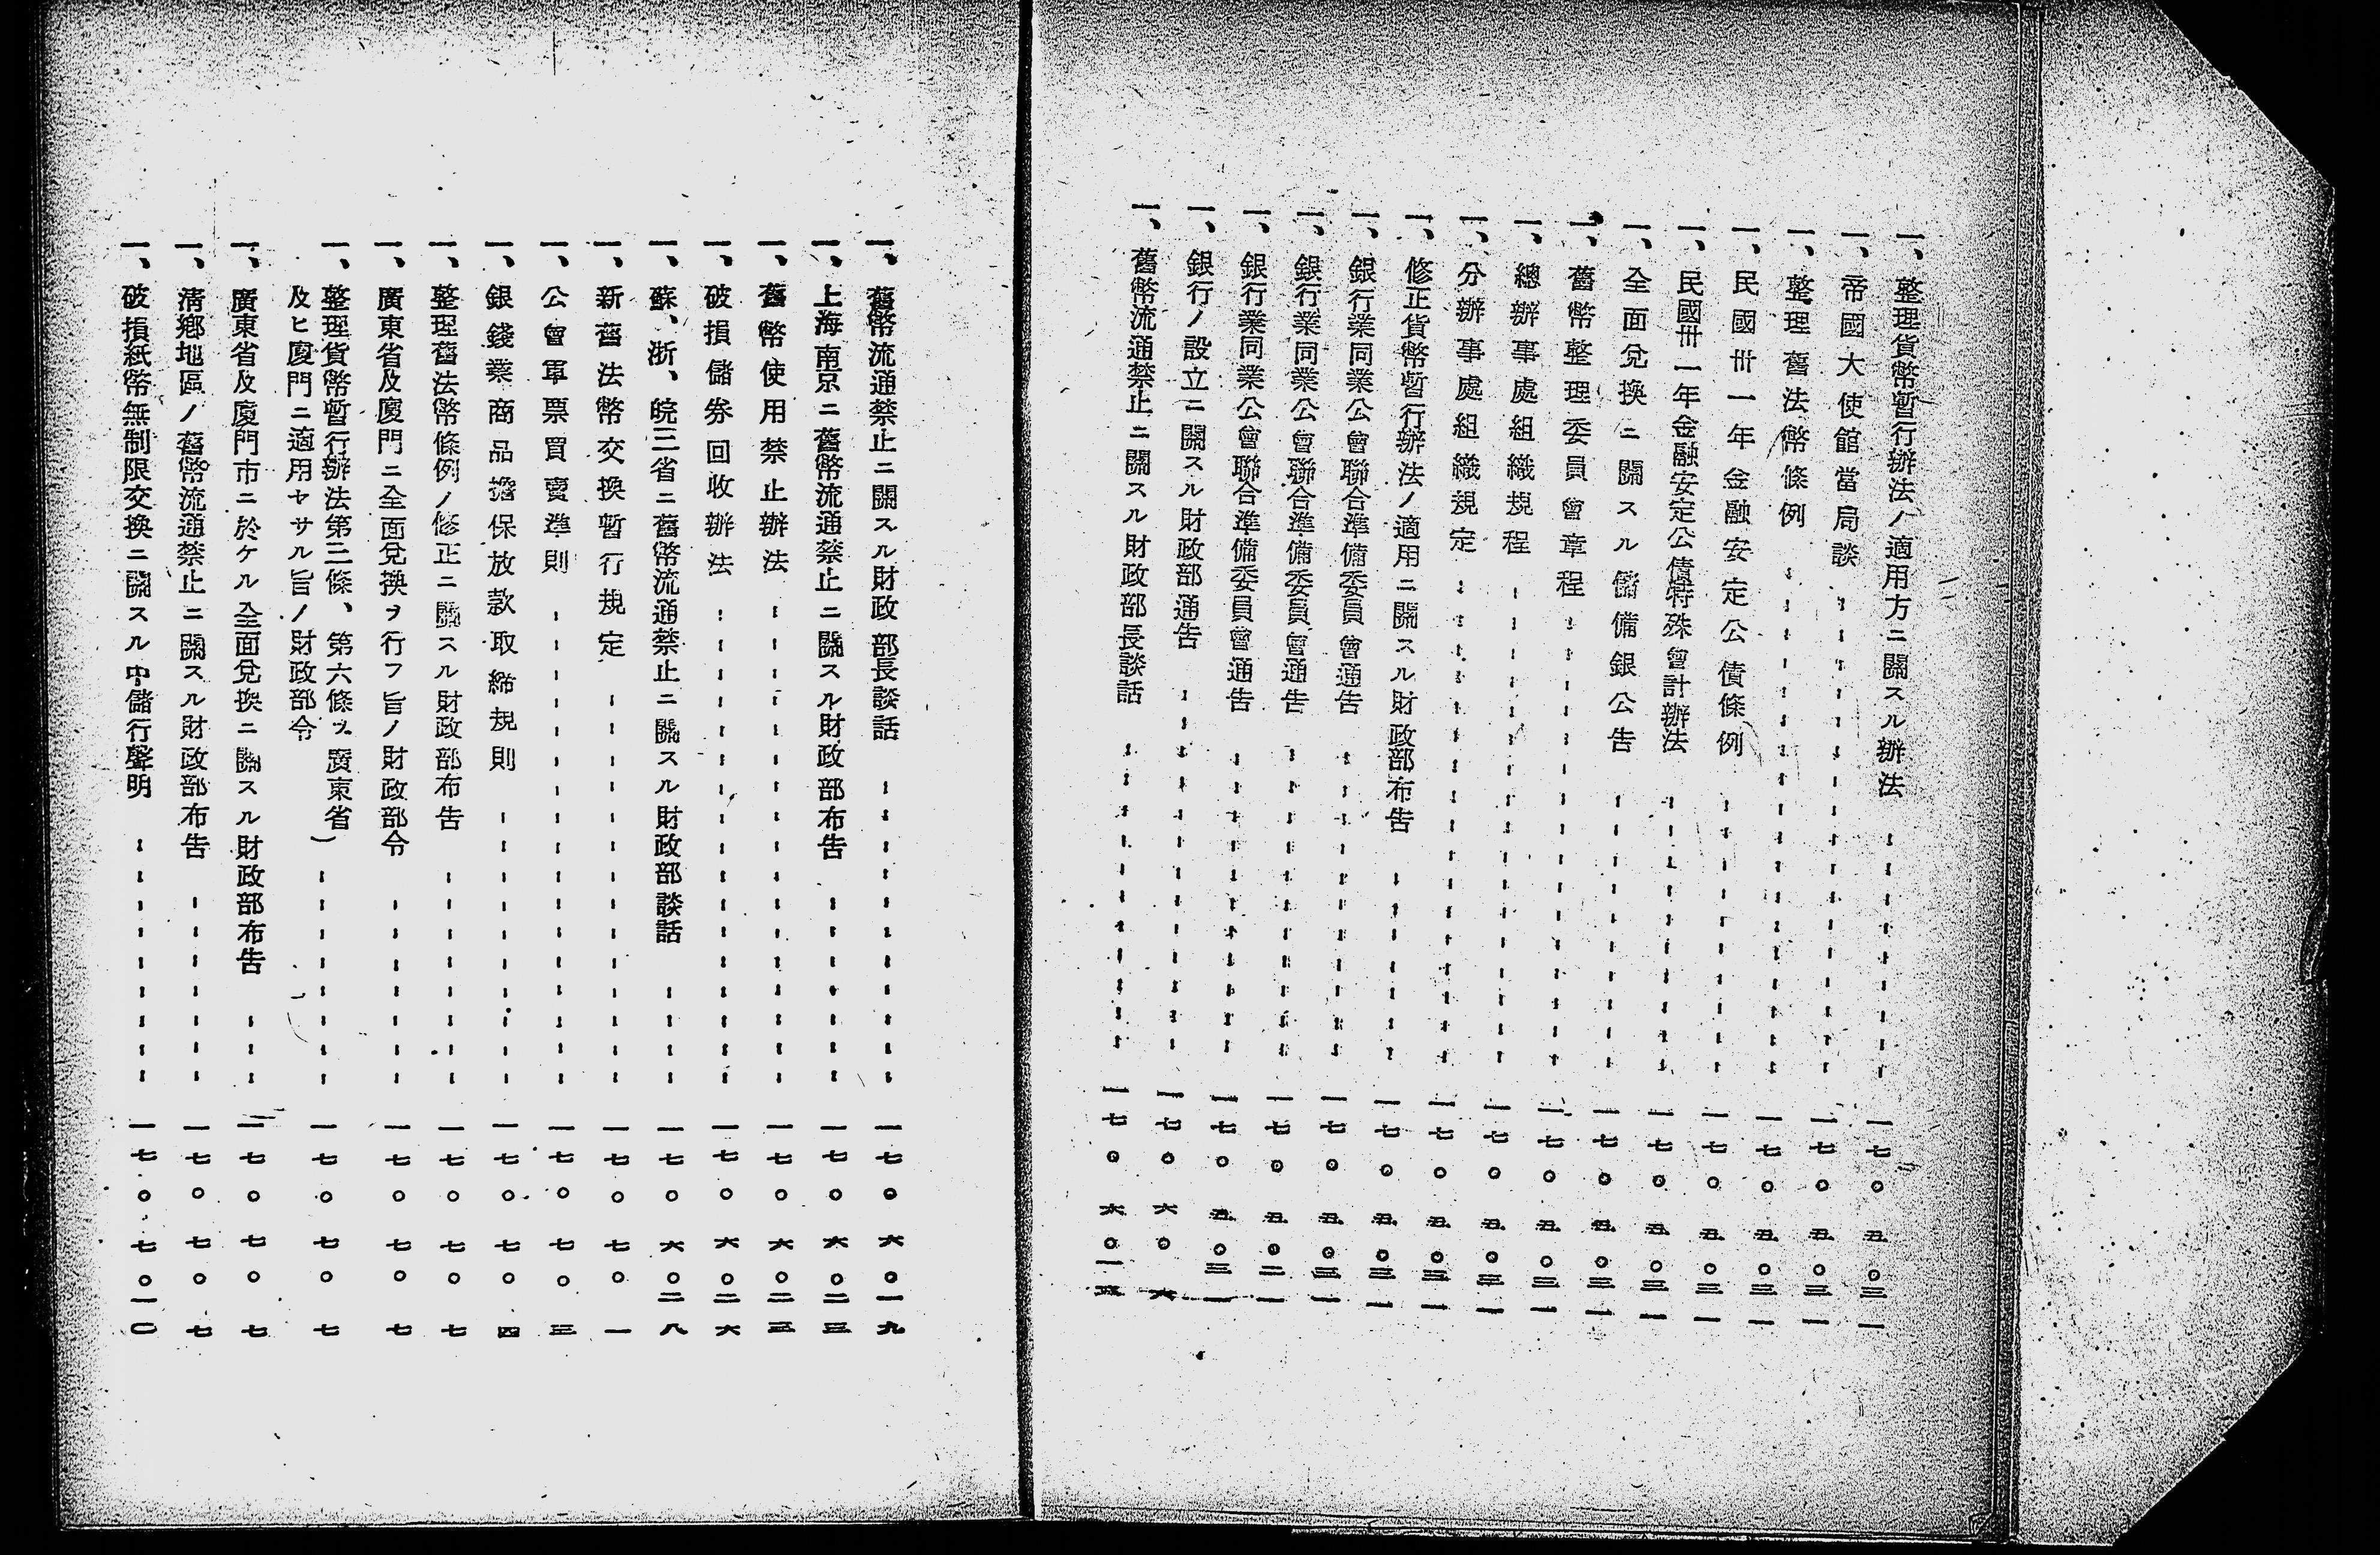 一、整理貨幣暫行辦法ノ適用方ニ關スル辦法 一七〇 五〇三一
一、帝國大使館當局談 一七〇 五〇三一
一、整理舊法幣條例 一七〇 五〇三一
一、民國卅一年金融安定公債條例 一七〇 五〇三一
一、民國卅一年金融安定公債特殊會計辦法 一七〇 五〇三一
一、全面兌換ニ關スル儲備銀公告 一七〇 五〇三一
一、舊幣整理委員會章程 一七〇 五〇三一
一、總辦事處組織規程 一七〇 五〇三一
一、分辦事處組織規定 一七〇 五〇三一
一、修正貨幣暫行辦法ノ適用ニ關スル財政部布告 一七〇 五〇三一
一、銀行業同業公會聯合準備委員會通告 一七〇 五〇三一
一、銀行業同業公會聯合準備委員會通告 一七〇 五〇二一
一、銀行業同業公會聯合準備委員會通告 一七〇 五〇三一
一、銀行ノ設立ニ關スル財政部通告 一七〇 六〇 六
一、舊幣流通禁止ニ關スル財政部長談話 一七〇 六〇一
一、舊幣流通禁止ニ關スル財政部長談話 一七〇 六〇一九
一、上海南京ニ舊幣流通禁止ニ關スル財政部布告 一七〇 六〇二三
一、舊幣使用禁止辦法 一七〇 六〇二三
一、破損儲券回收辦法 一七〇 六〇二六
一、蘇、浙、皖三省ニ舊幣流通禁止ニ關スル財政部談話 一七〇 六〇二八
一、新舊法幣交換暫行規定 一七〇 七〇 一
一、公會軍票買賣準則 一七〇 七〇 三
一、銀錢業商品擔保放款取締規則 一七〇 七〇 四
一、整理舊法幣條例ノ修正ニ關スル財政部布告 一七〇 七〇 七
一、廣東省及廈門ニ全面兌換ヲ行フ旨ノ財政部令 一七〇 七〇 七
一、整理貨幣暫行辦法第三條、第六條ヲ廣東省
及ヒ廈門ニ適用セサル旨ノ財政部令） 一七〇 七〇 七
一、廣東省及廈門市ニ於ケル全面兌換ニ關スル財政部布告 一七〇 七〇 七
一、清鄉地區ノ舊幣流通禁止ニ關スル財政部布告 一七〇 七〇 七
一、破損紙幣無制限交換ニ關スル中儲行聲明 一七〇 七〇一〇